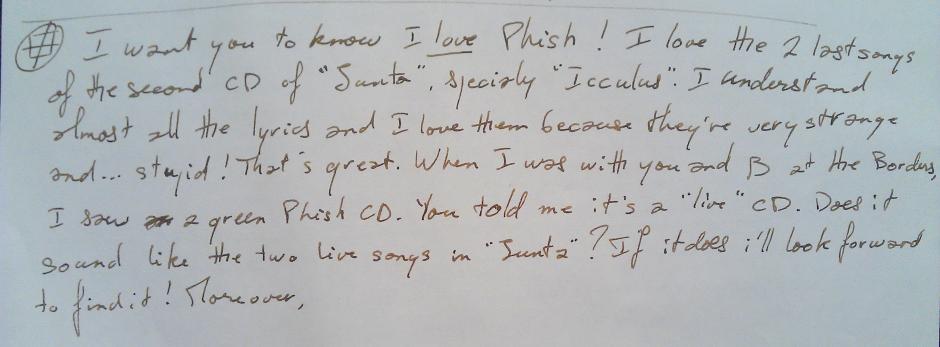 # I want you to know I love Phish! I love the 2 last songs
of the second CD of "Junta", specialy "Icculus". I understand
almost all the lyrics and I love them because they're very strange
and... stupid! That's great. When I was with you and B at the Borders,
I saw a green Phish CD. You told me it's a "live" CD. Does it
sound like the two live songs in "Junta"? If it does i'll look forward
to find it! Moreover,